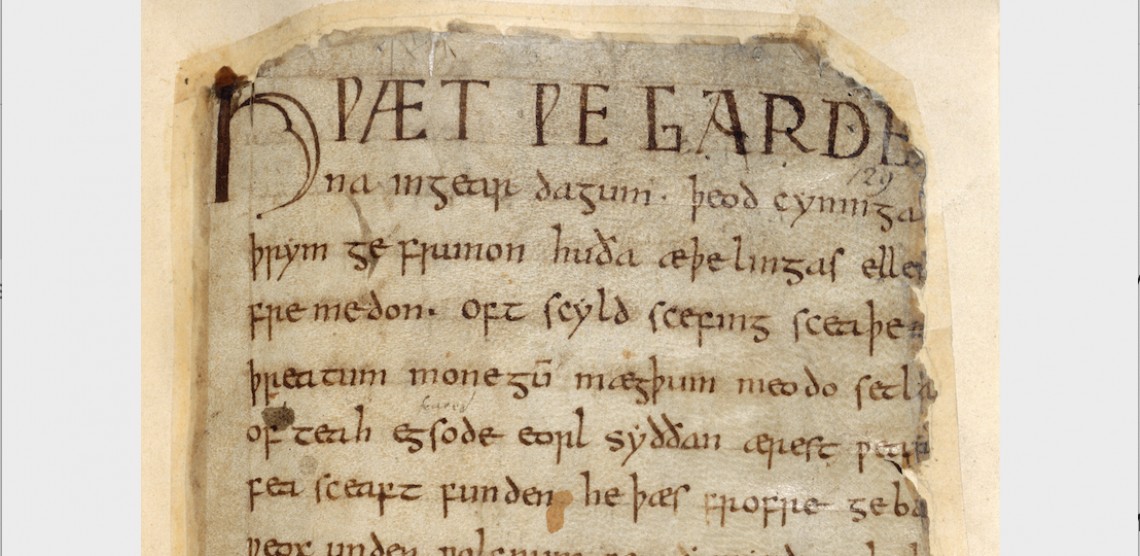 HǷÆT ǷE GARDE
129
na ingear dagum. þeod cyninga
þrym ge frunon huða æþelingas elle
fre medon. oft scyld scefing sceaþe
þreatum monegū mægþum meodo setla
of teah egsode eorl syððan ærest ƿear
fea sceaft funden he þæs frofre geba
ƿeox under ƿolcnum